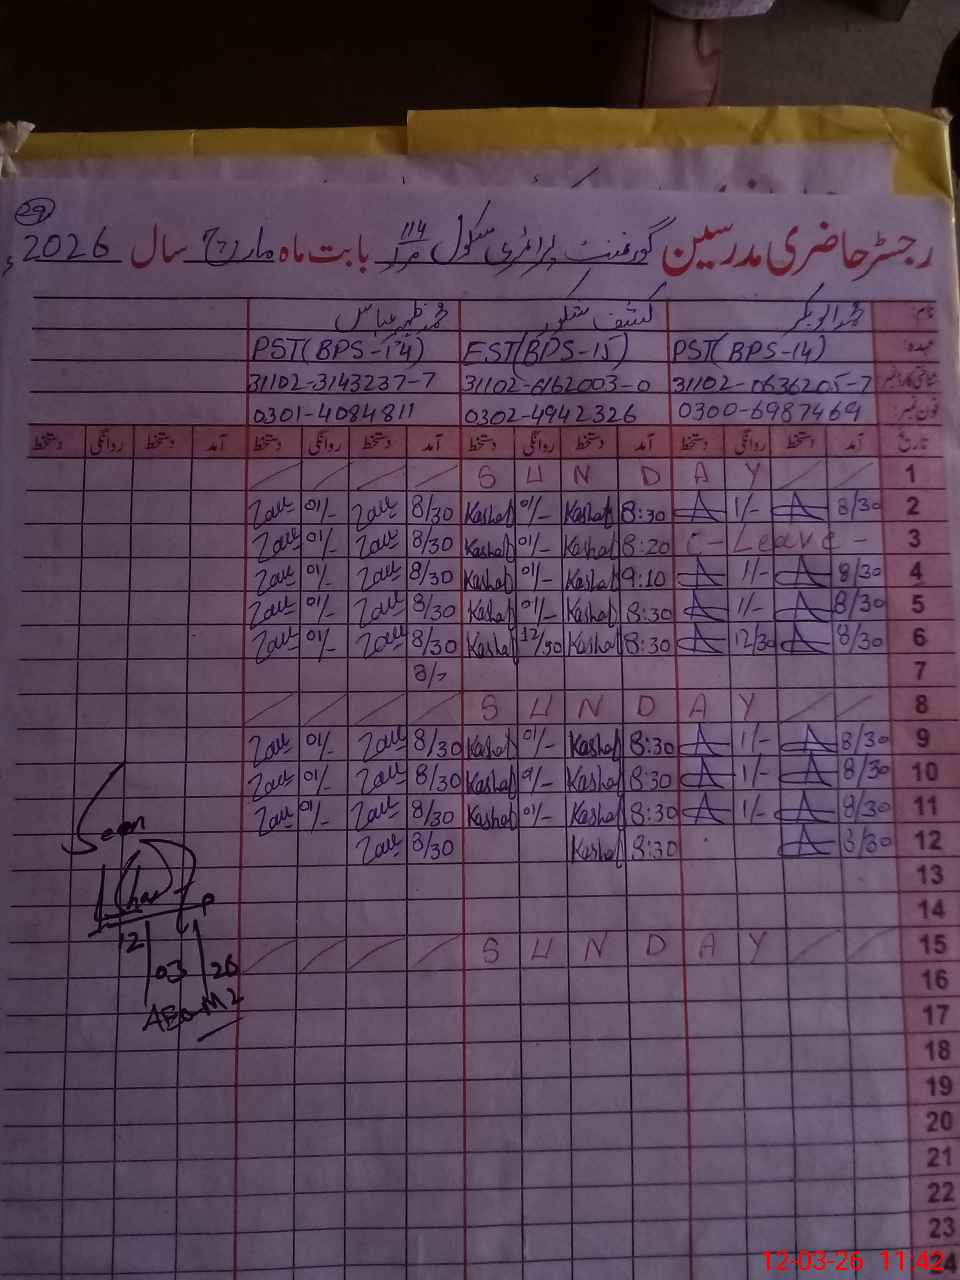 29
رجسٹر حاضری مدرسین گورنمنٹ پرائمری سکول 114 بابت ماہ مارچ سال 2026ء
نام: محمد ابوبکر کشف شکور محمد ظہیر عباس
عہدہ: PST(BPS-14) EST(BPS-15) PST(BPS-14)
شناختی کارڈ نمبر 31102-0636205-7 31102-6162003-0 31102-3143237-7
فون نمبر: 0300-6987469 0302-4942326 0301-4084811
تاریخ آمد دستخط روانگی دستخط آمد دستخط روانگی دستخط آمد دستخط روانگی دستخط آمد دستخط روانگی دستخط
S U N D A Y 1
01/- 8/30 Kashaf 01/- Kashaf 8:30 A 1/- A 8/30 2
01/- 8/30 Kashaf 01/- Kashaf 8:20 C - Leave - 3
01/- 8/30 Kashaf 01/- Kashaf 9:10 A 1/- A 8/30 4
01/- 8/30 Kashaf 01/- Kashaf 8:30 A 1/- A 8/30 5
01/- 8/30 Kashaf 12/30 Kashaf 8:30 A 12/30 A 8/30 6
8/- 7
S U N D A Y 8
01/- 8/30 Kashaf 01/- Kashaf 8:30 A 1/- A 8/30 9
01/- 8/30 Kashaf 01/- Kashaf 8:30 A 1/- A 8/30 10
01/- 8/30 Kashaf 01/- Kashaf 8:30 A 1/- A 8/30 11
8/30 Kashaf 8:30 A 8/30 12
13
14
S U N D A Y 15
16
17
18
19
20
21
22
23
24
Seen
12 03 26
12-03-26 11:42